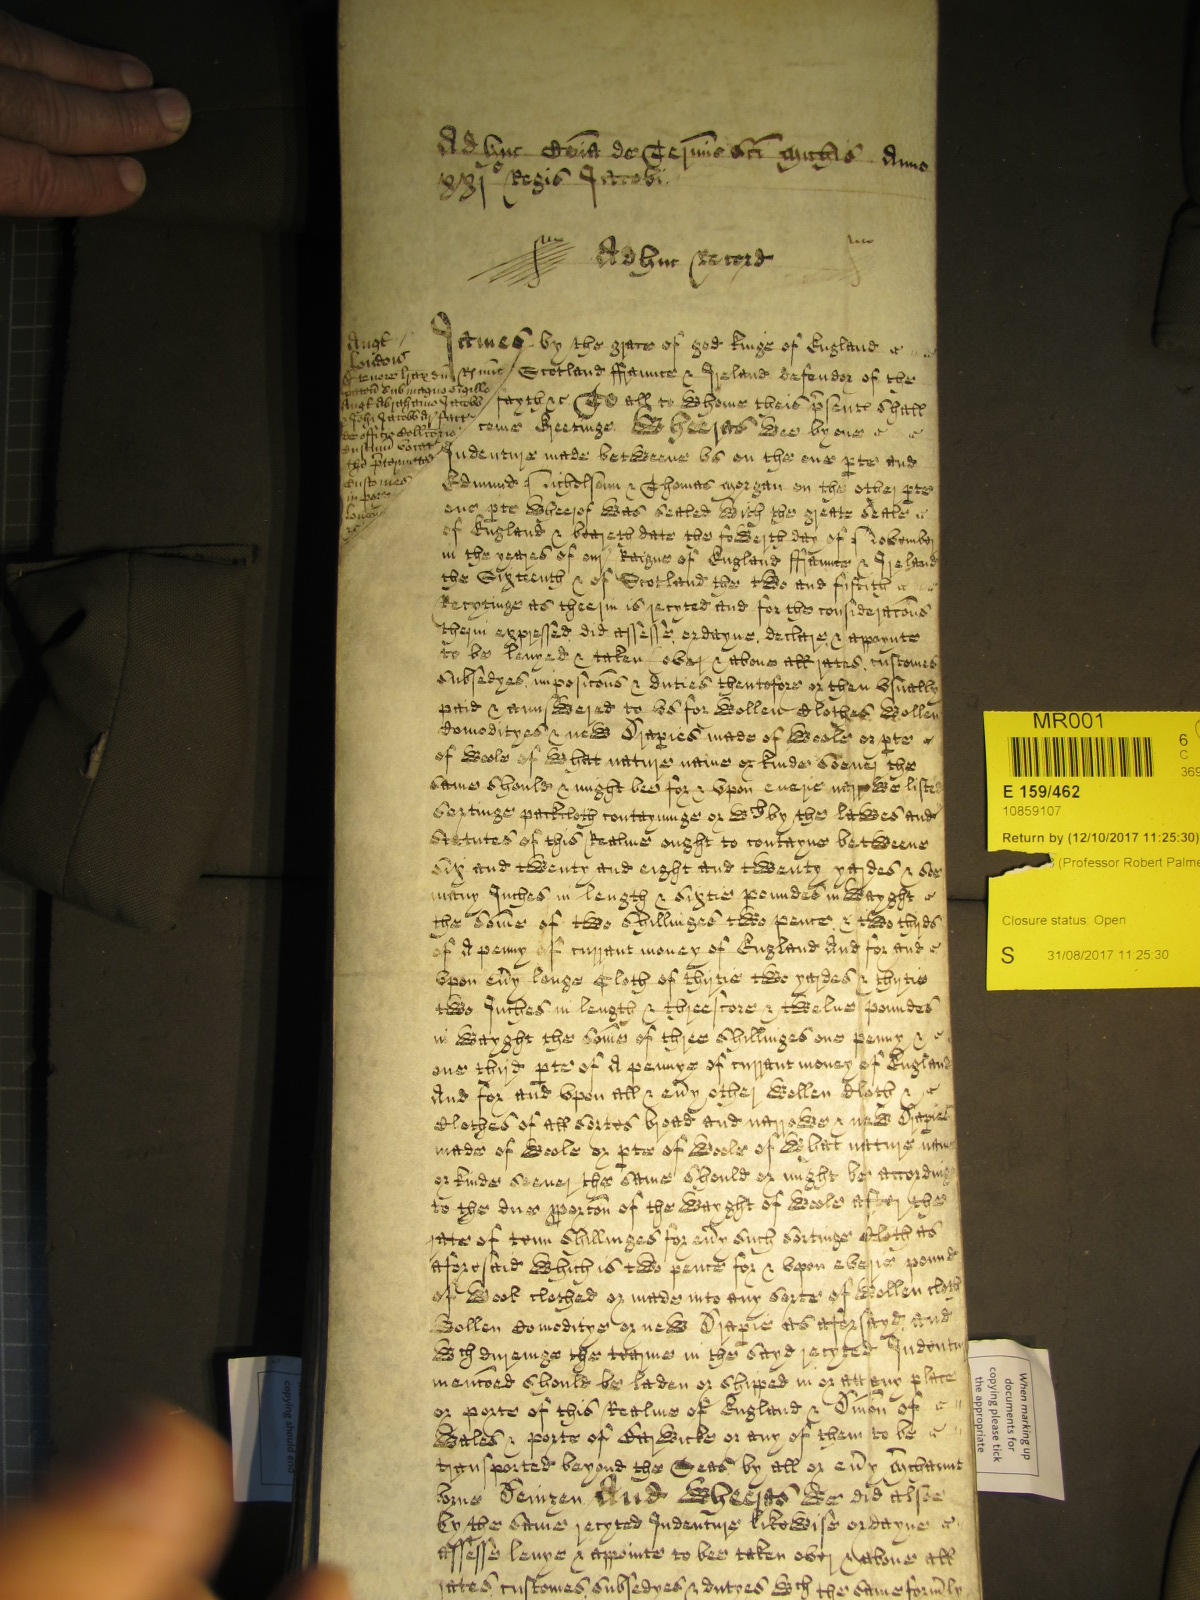 Adhuc Coīa de Termio Sc̄i Mich̄is Anno
xxj° Regis Jacobi.
Adhuc Record
Angl
London
James by the grace of god kinge of England
Scotland ffraunce & Ireland defendor of the
fayth &c To all to whome theis p̄sente shall
come Greetinge Whereas Wee by one
Indenture made betweene vs on the one pte and
Edmund Nicholson & Thomas Morgan on the other pte
one pte Whereof Was sealed With the greate Seale
of England & beareth date the fowerth day of November
in the yeares of our Raigne of England ffraunce & Ireland
the Sixteenth & of Scotland the two and fiftith
Recytinge as therein is recyted and for the consideracōns
therin expressed did assesse, ordayne, declare & appoynte
to be leuyed & taken over & aboue all rates, customes
subsedyes, imposicōns & duties thentofore or then vsually
paid & aunswered to vs for Wollen Clothes Wollen
Comodityes & new Draperies made of Woole or pte
of Woole of What nature name or kinde soever the
same should & might bee for & vpon euerie narrowe liste
sortinge packcloth contayninge or wch by the lawes and
Statutes of this Realme ought to contayne betweene
Six and twenty and eight and twenty yardes & soe
many Inches in length & sixtie poundes in Wayght
the some of two shillinges two pence & two thirds
of A penny of currant money of England And for and
vpon eūy longe Cloth of thirtie two yardes & thirtie
two Inches in length & threescore & twelue poundes
in Wayght the some of three shillinges one penny &
one third pte of A pennye of currant money of England
And for and vpon all & eūy other Wollen Cloth &
Clothes of all sortes broad and narrowe & new Draperie
made of Woole or pte of Woole of What nature name
or kinde soever the same should or might be accordinge
to the due pporcōn of the Wayght of Woole after the
rate of tenn shillinges for eūy such sortinge Cloth as
aforesaid Which is two pence for & vpon everie pound
of Wooll clothed or made into any sorte of Wollen cloth
Wollen Comoditye or new Draperie as aforesayd, and
Wch dureinge the tearme in the sayd recyted Indenture
mencōed should be laden or shipped in or att any place
or porte of this Realme of England & Domōn of
Wales & porte of Barwicke or any of them to be
transported beyond the Seas by all or eūy Merchaunt
borne Denizen And Whereas We did alsoe
by the same recyted Indenture likewise ordayne
assesse leuye & appointe to bee taken over & aboue all
rates, customes, subsedyes & dutyes Wch the same form̄ly
MR001
E 159/462
10859107
Return by (12/10/2017 11:25:30)
(Professor Robert Palme
Closure status: Open
S 31/08/2017 11:25:30
6
C
369
When marking up
documents for
copying please tick
the appropriate
copying should end